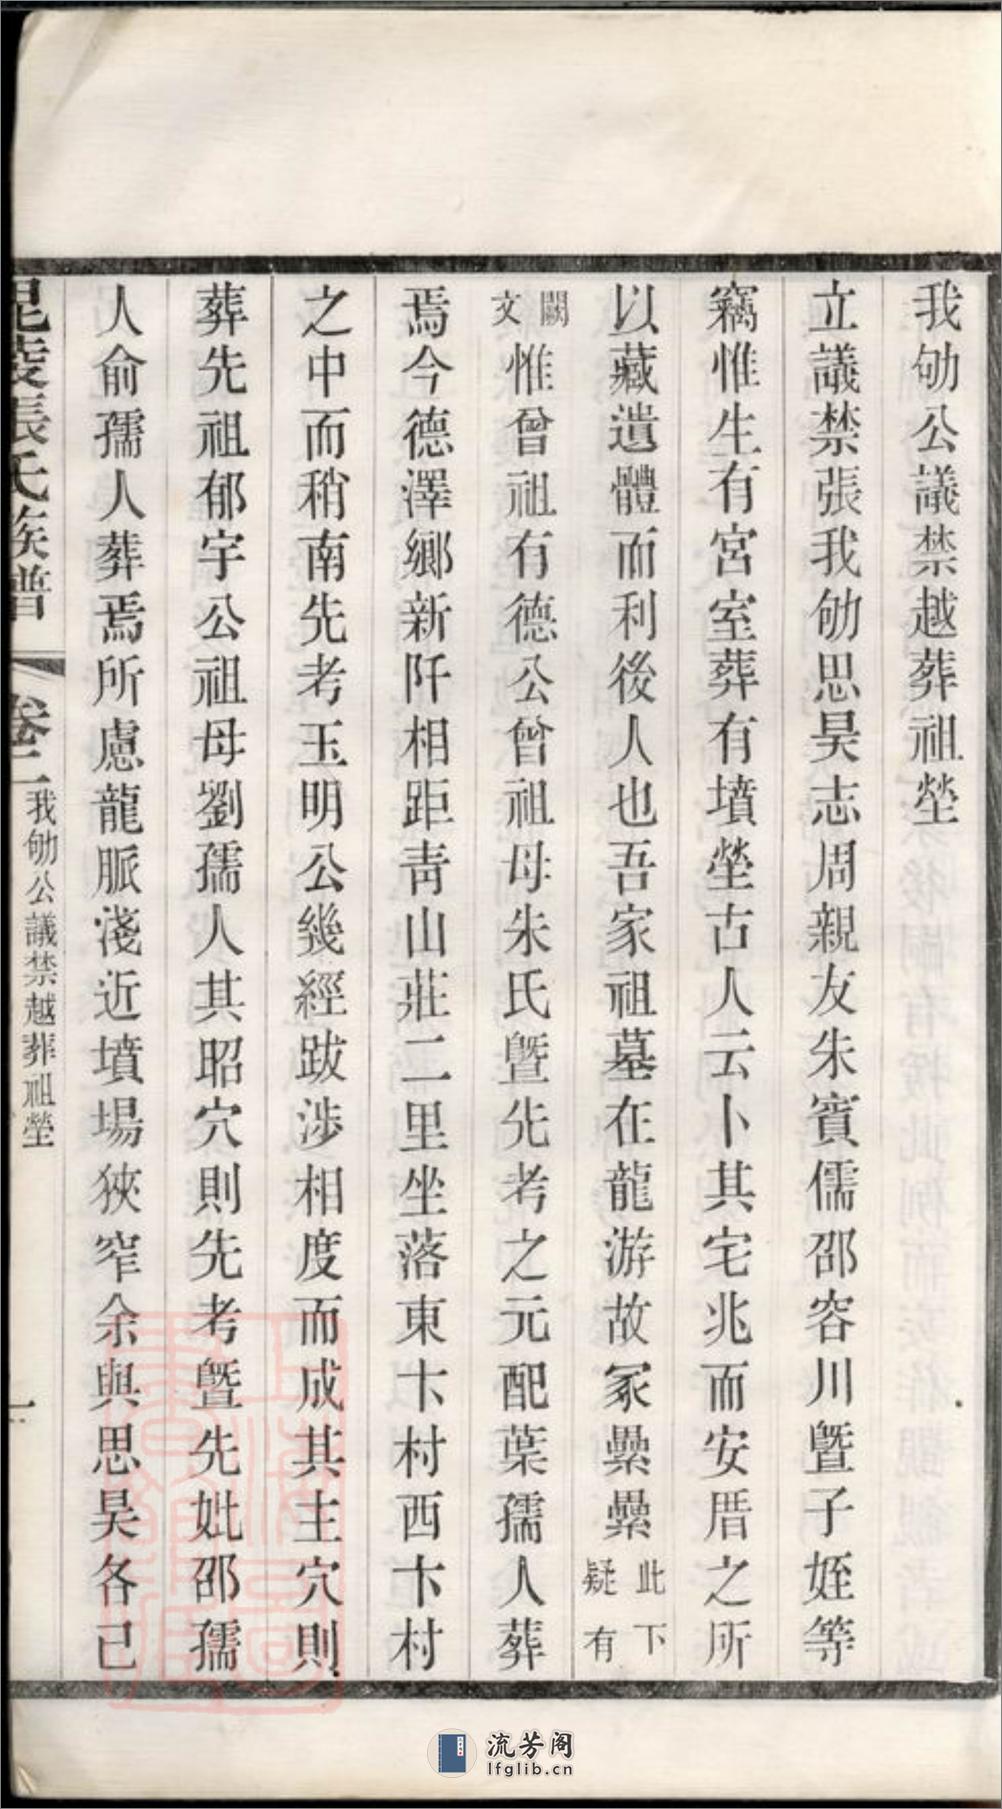 我劬公議禁越葬祖塋
立議禁張我劬思昊志周親友朱賓儒邵容川曁子姪等
竊惟生有宮室葬有墳塋古人云卜其宅兆而安厝之所
以藏遺體而利後人也吾家祖墓在龍游故冢纍纍此下疑有
闕文惟曾祖有德公曾祖母朱氏曁先考之元配葉孺人葬
焉今德澤鄉新阡相距靑山莊二里坐落東卞村西卞村
之中而稍南先考玉明公幾經跋涉相度而成其主穴則
葬先祖郁宇公祖母劉孺人其昭穴則先考曁先妣邵孺
人俞孺人葬焉所慮龍脈淺近墳場狹窄余與思昊各已
毘陵張氏族譜 卷二 我劬公議禁越葬祖塋 一
流芳阁
lfglib.cn